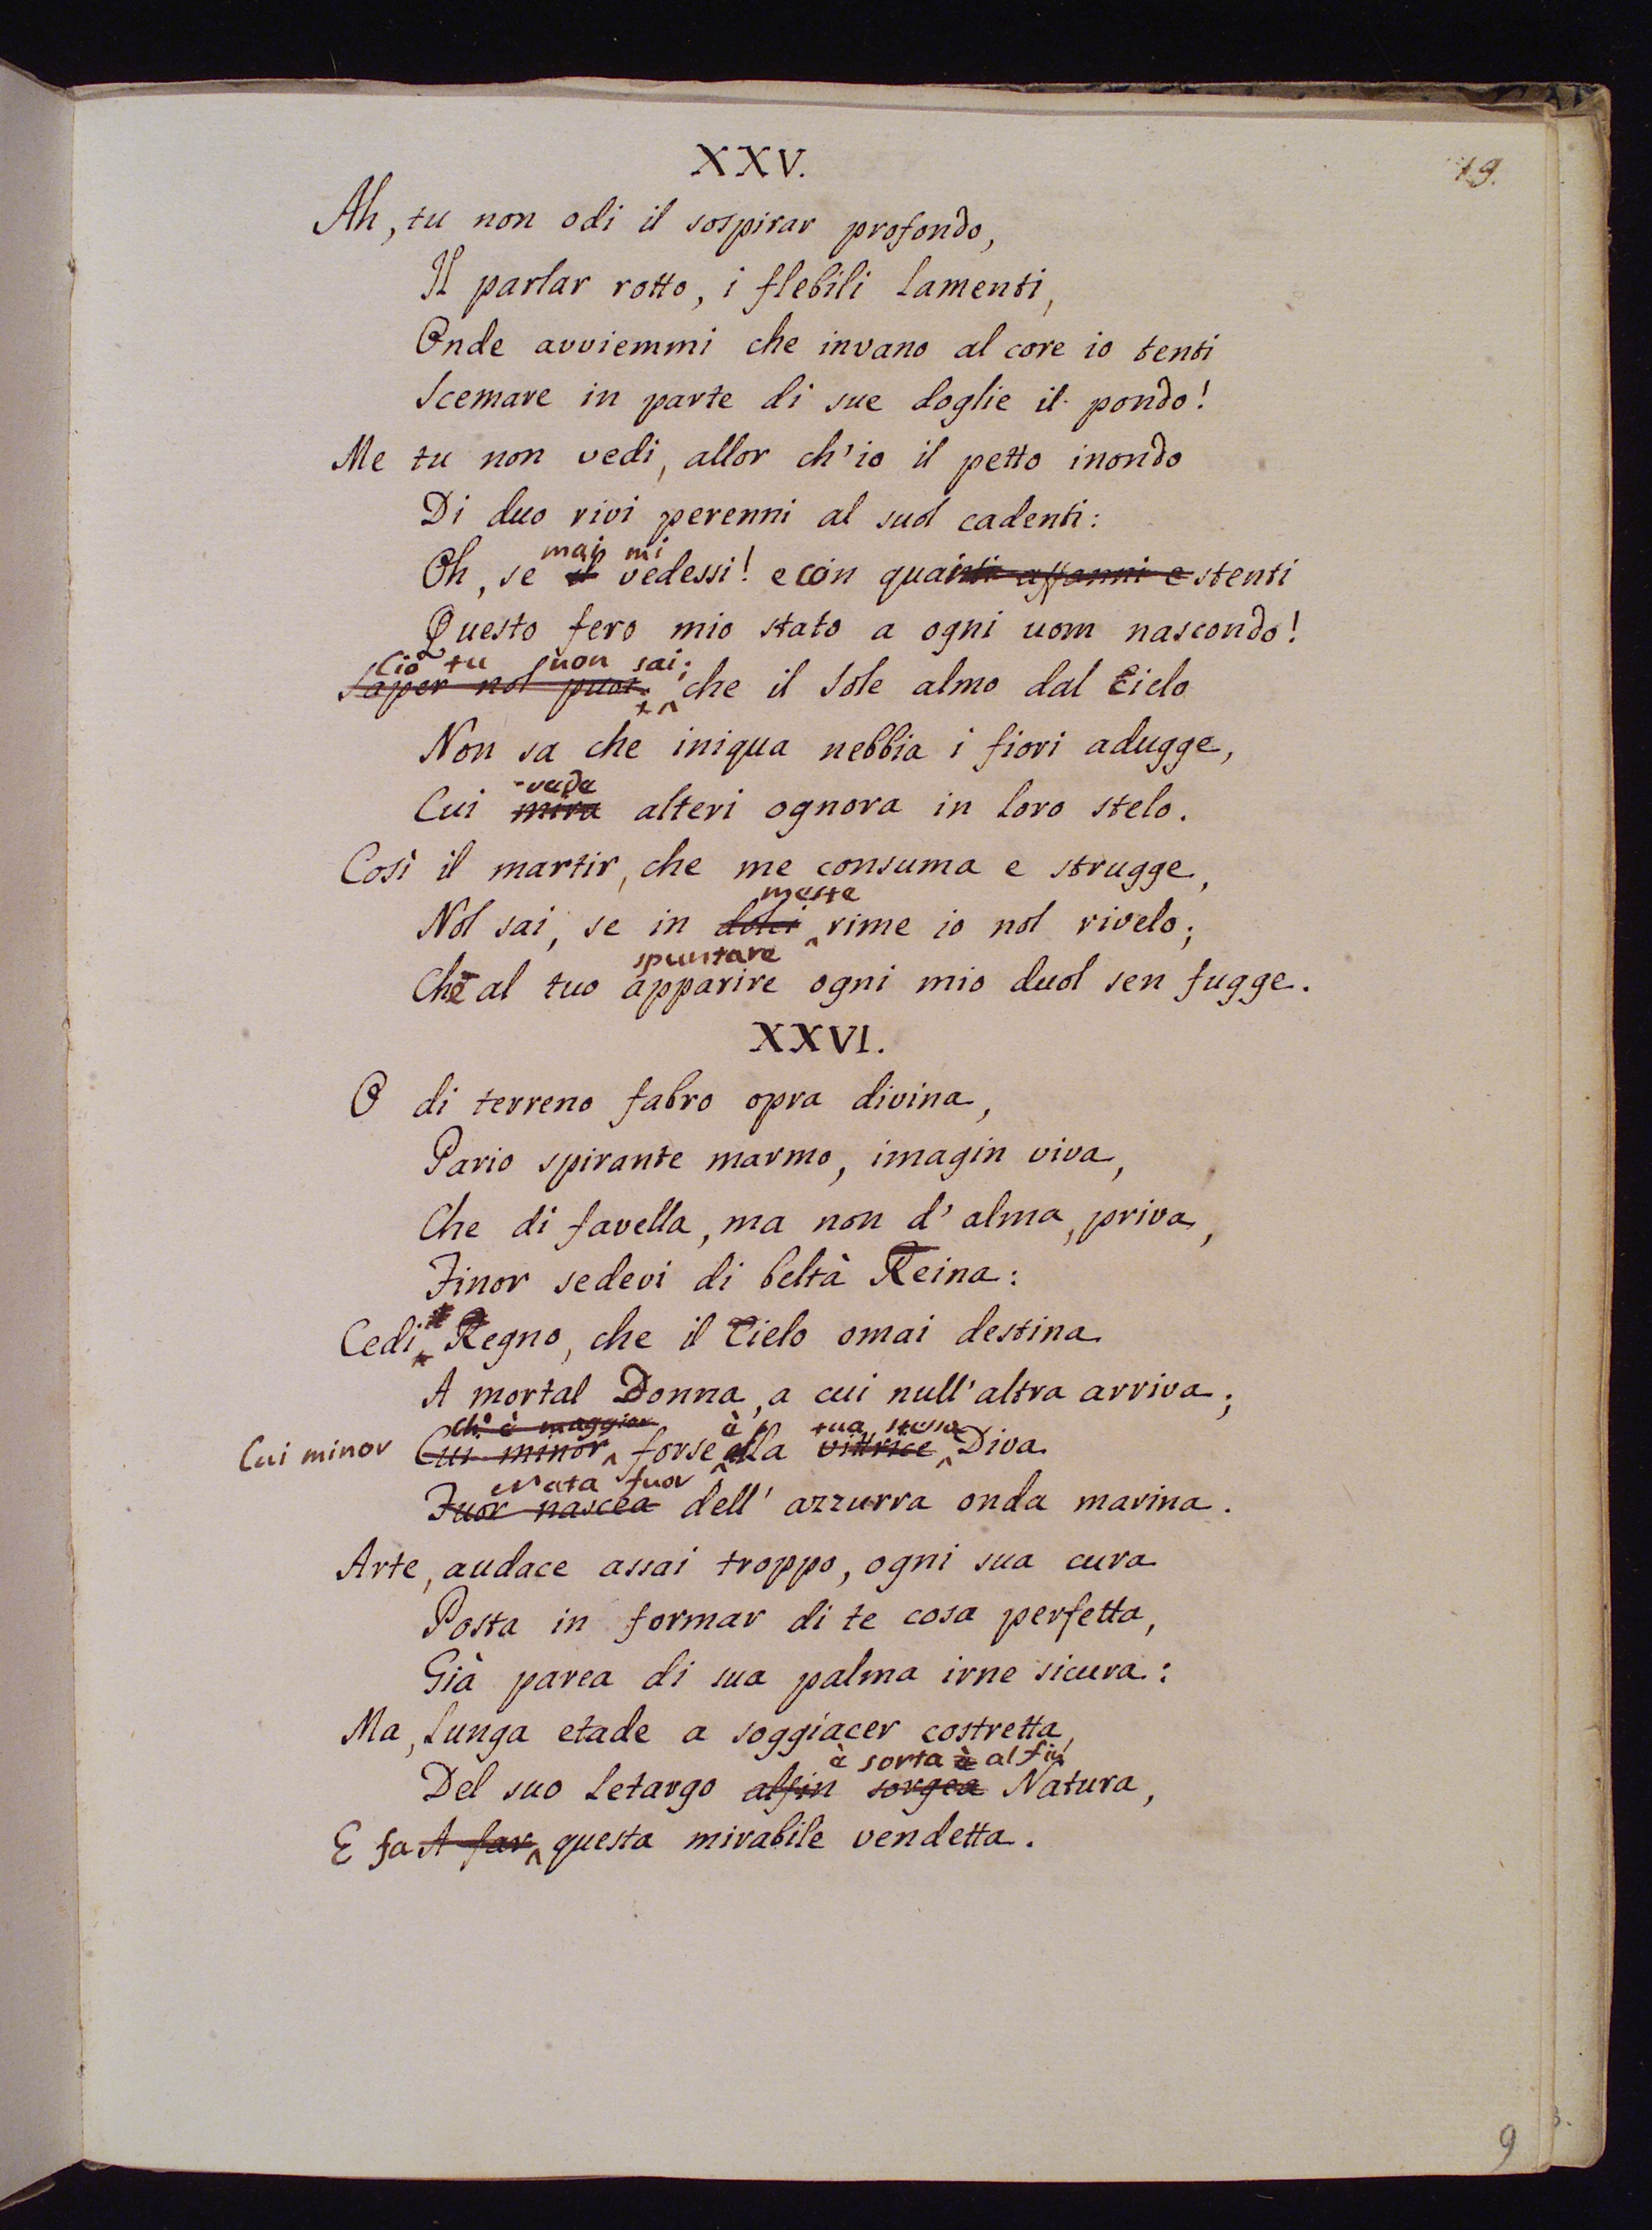 XXV.
19.
Ah, tu non odi il sospirar profondo,
Il parlar rotto, i flebili lamenti,
Onde avviemmi che invano al core io tenti
Scemare in parte di sue doglie il pondo!
Me tu non vedi, allor ch'io il petto inondo
Di duo rivi perenni al suol cadenti:
mai mi
Oh, se il vedessi! e con quanti affanni e stenti
Questo fero mio stato a ogni uom nascondo!
Ciò tu non sai;
Saper nol puoi: che il Sole almo dal Cielo
Non sa che iniqua nebbia i fiori adugge,
vede
Cui mira alteri ognora in loro stelo.
Così il martir, che me consuma e strugge,
meste
Nol sai, se in dolci rime io nol rivelo;
spuntare
Chè al tuo apparire ogni mio duol sen fugge.
XXVI.
O di terreno fabro opra divina,
Pario spirante marmo, imagin viva,
Che di favella, ma non d'alma, priva,
Finor sedevi di beltà Reina:
Cedi Regno, che il Cielo omai destina
A mortal Donna, a cui null'altra arriva;
Ch' è maggior è tua stessa
Cui minor Cui minor forse ella vittrice Diva
Nata fuor
Fuor nascea dell' azzurra onda marina.
Arte, audace assai troppo, ogni sua cura
Posta in formar di te cosa perfetta,
Già parea di sua palma irne sicura:
Ma, lunga etade a soggiacer costretta,
è sorta è alfin
Del suo letargo alfin sorgea Natura,
E fa A far questa mirabile vendetta.
9